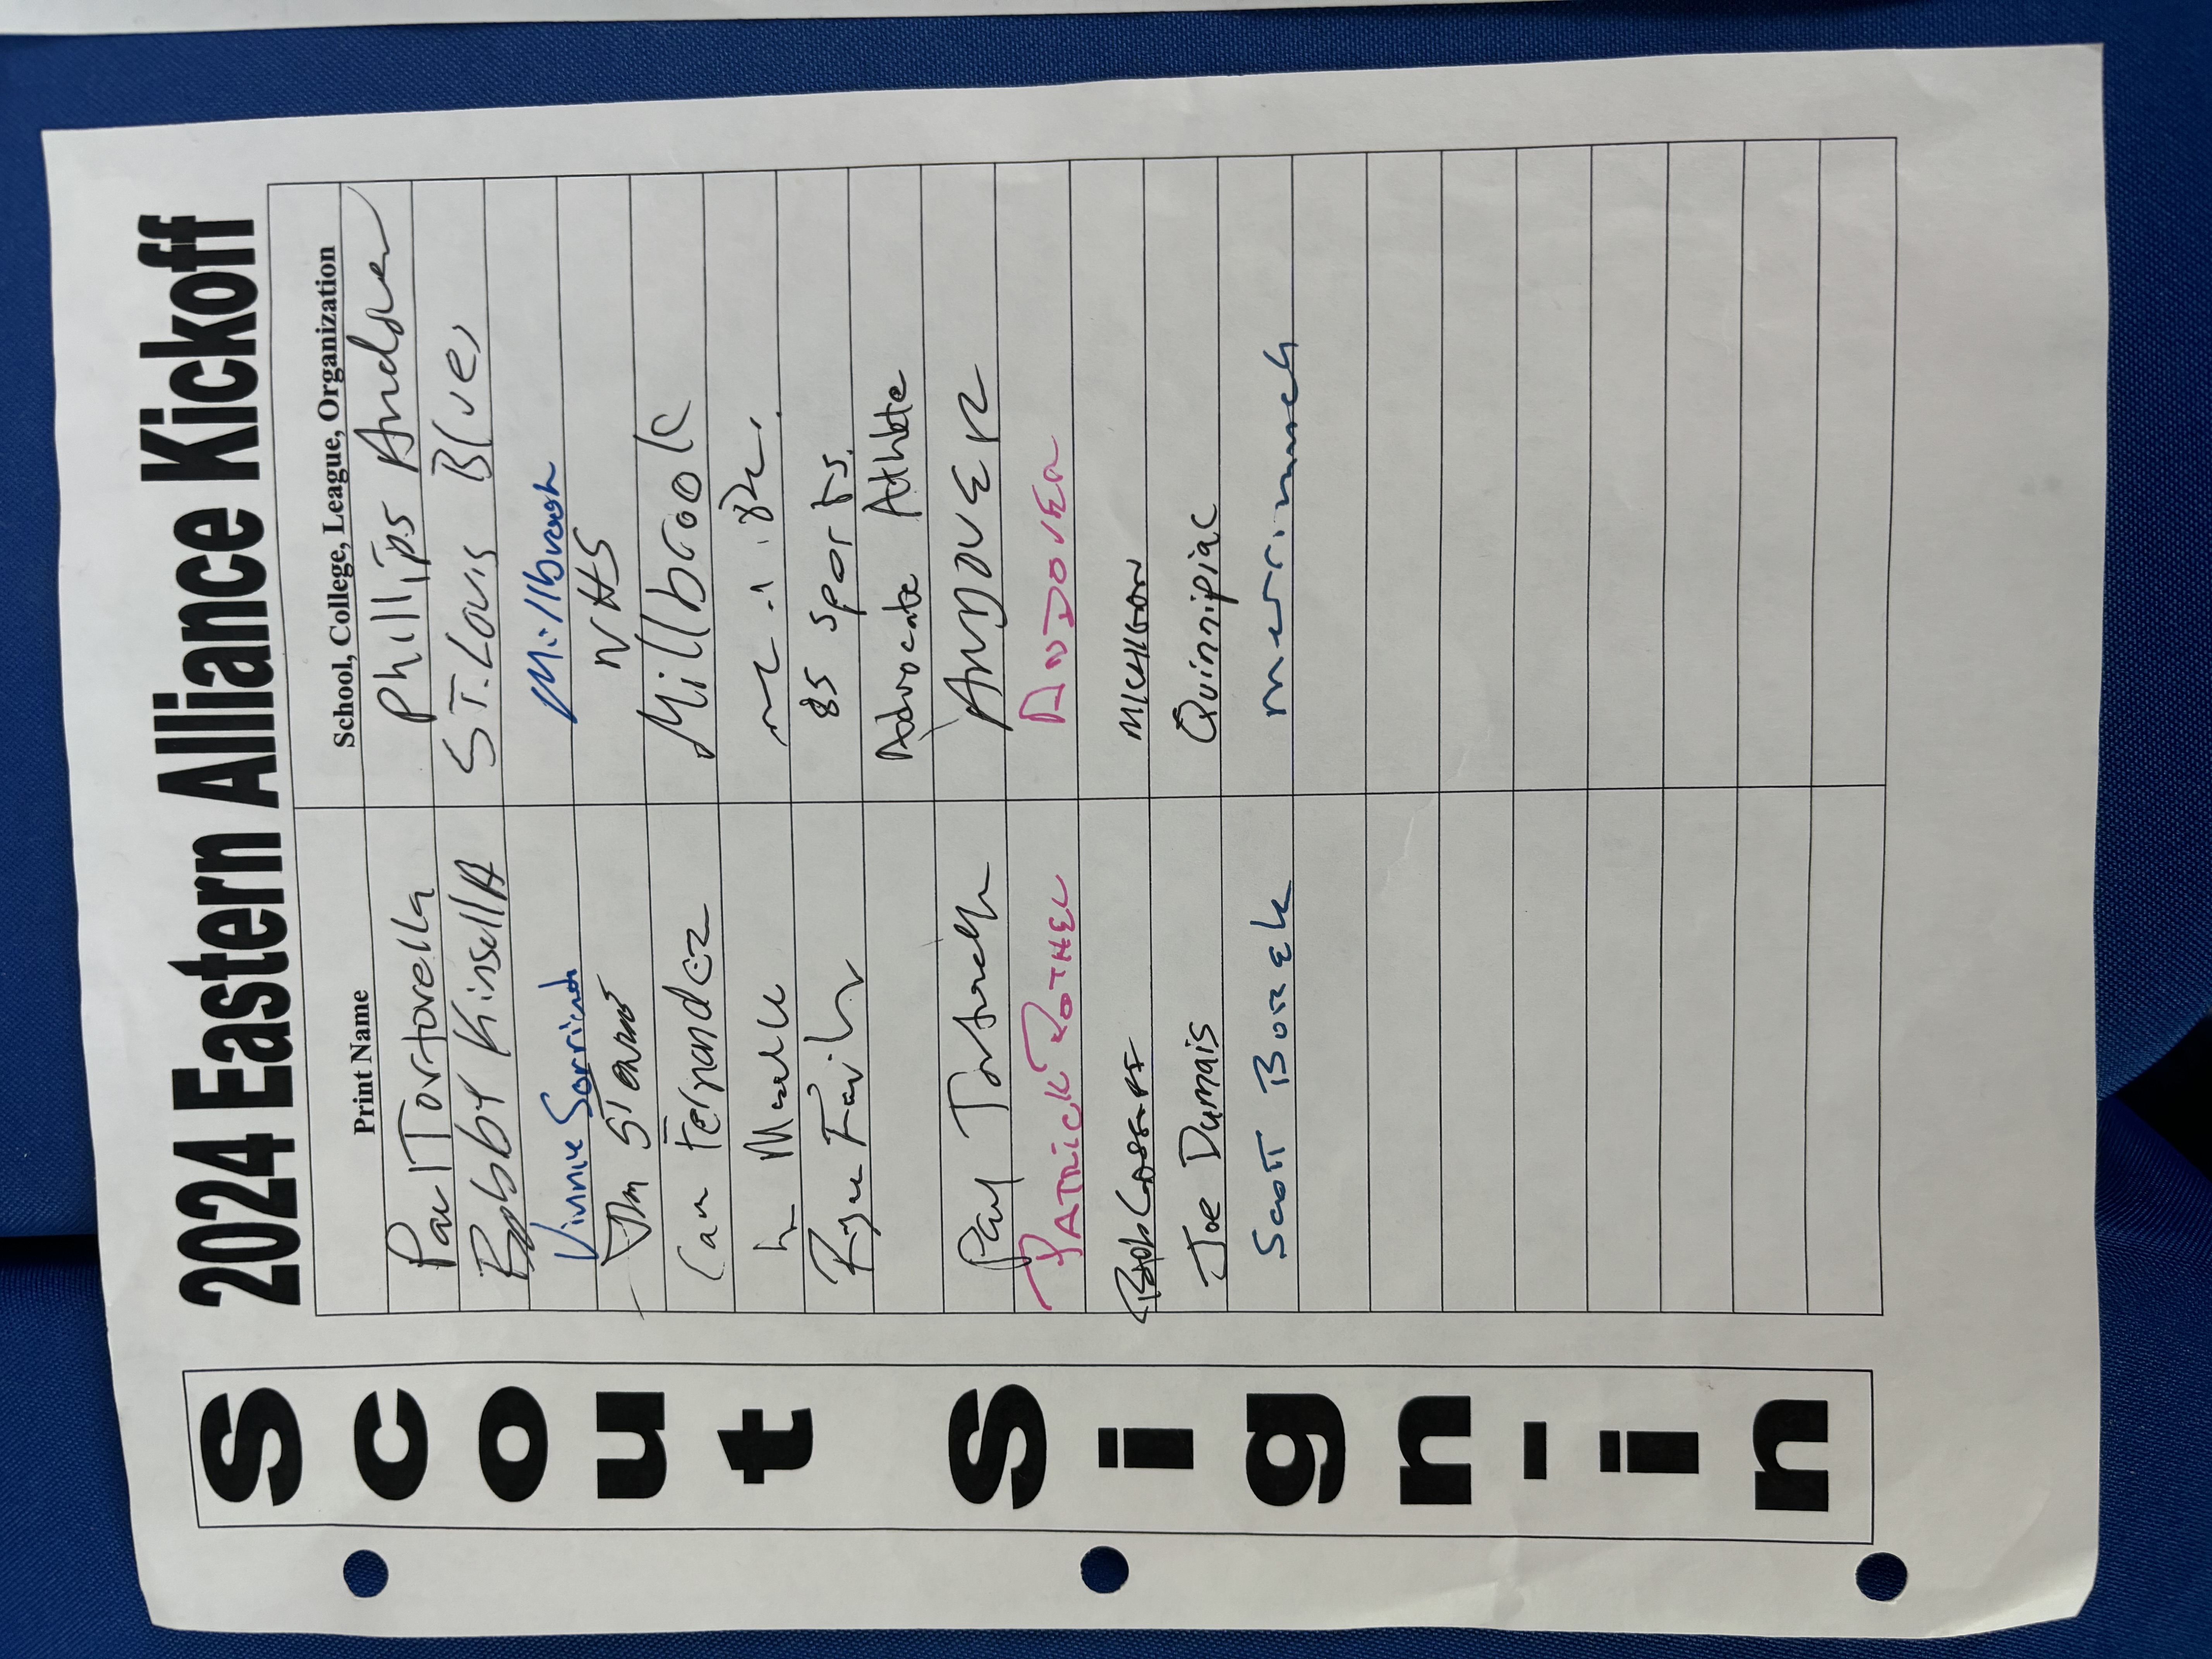 2024 Eastern Alliance Kickoff
Scout Sign-in
Print Name School, College, League, Organization
Paul Tortorella Phillips Andover
Bobby Kinsella ST. Louis Blues
Vinnie
Jim NHS
Cam Fernandez Millbrook
85 Sports
Advocate Athlete
Paul Tortorella ANDOVER
PATRICK ROTHEL ANDOVER
MICHIGAN
Joe Dumais Quinnipiac
Scott Borek merrimack